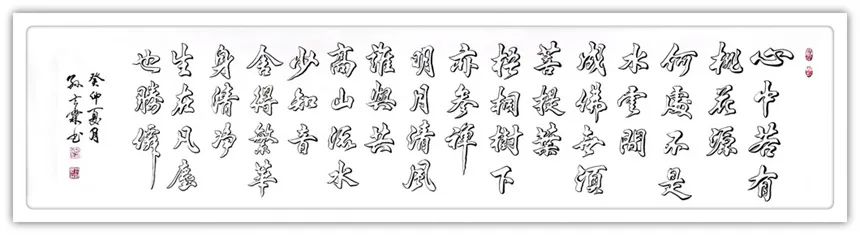 心中若有
桃花源
何處不是
水雲間
成佛無須
菩提葉
梧桐樹下
亦參禅
明月清風
誰與共
高山流水
少知音
舍得繁華
身清净
生在凡塵
也勝僊
癸卯夏月